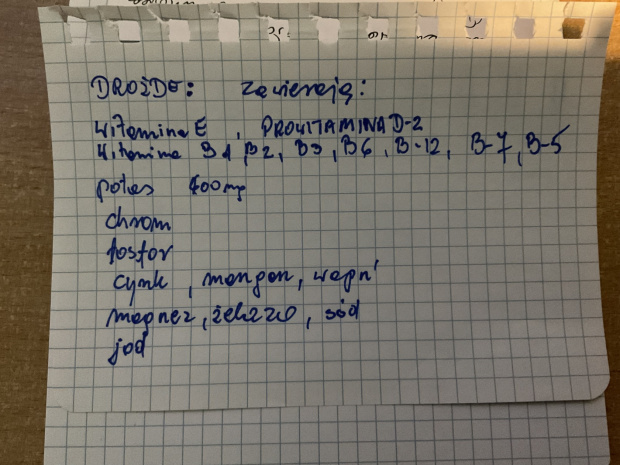 DROŻDŻE: Zawierają:
Witamina E, PROWITAMINA D-2
Witamina B1, B2, B3, B6, B-12, B-7, B-5
potas 400 mg
chrom
fosfor
cynk, mangan, wapń
magnez, żelazo, sód
jod